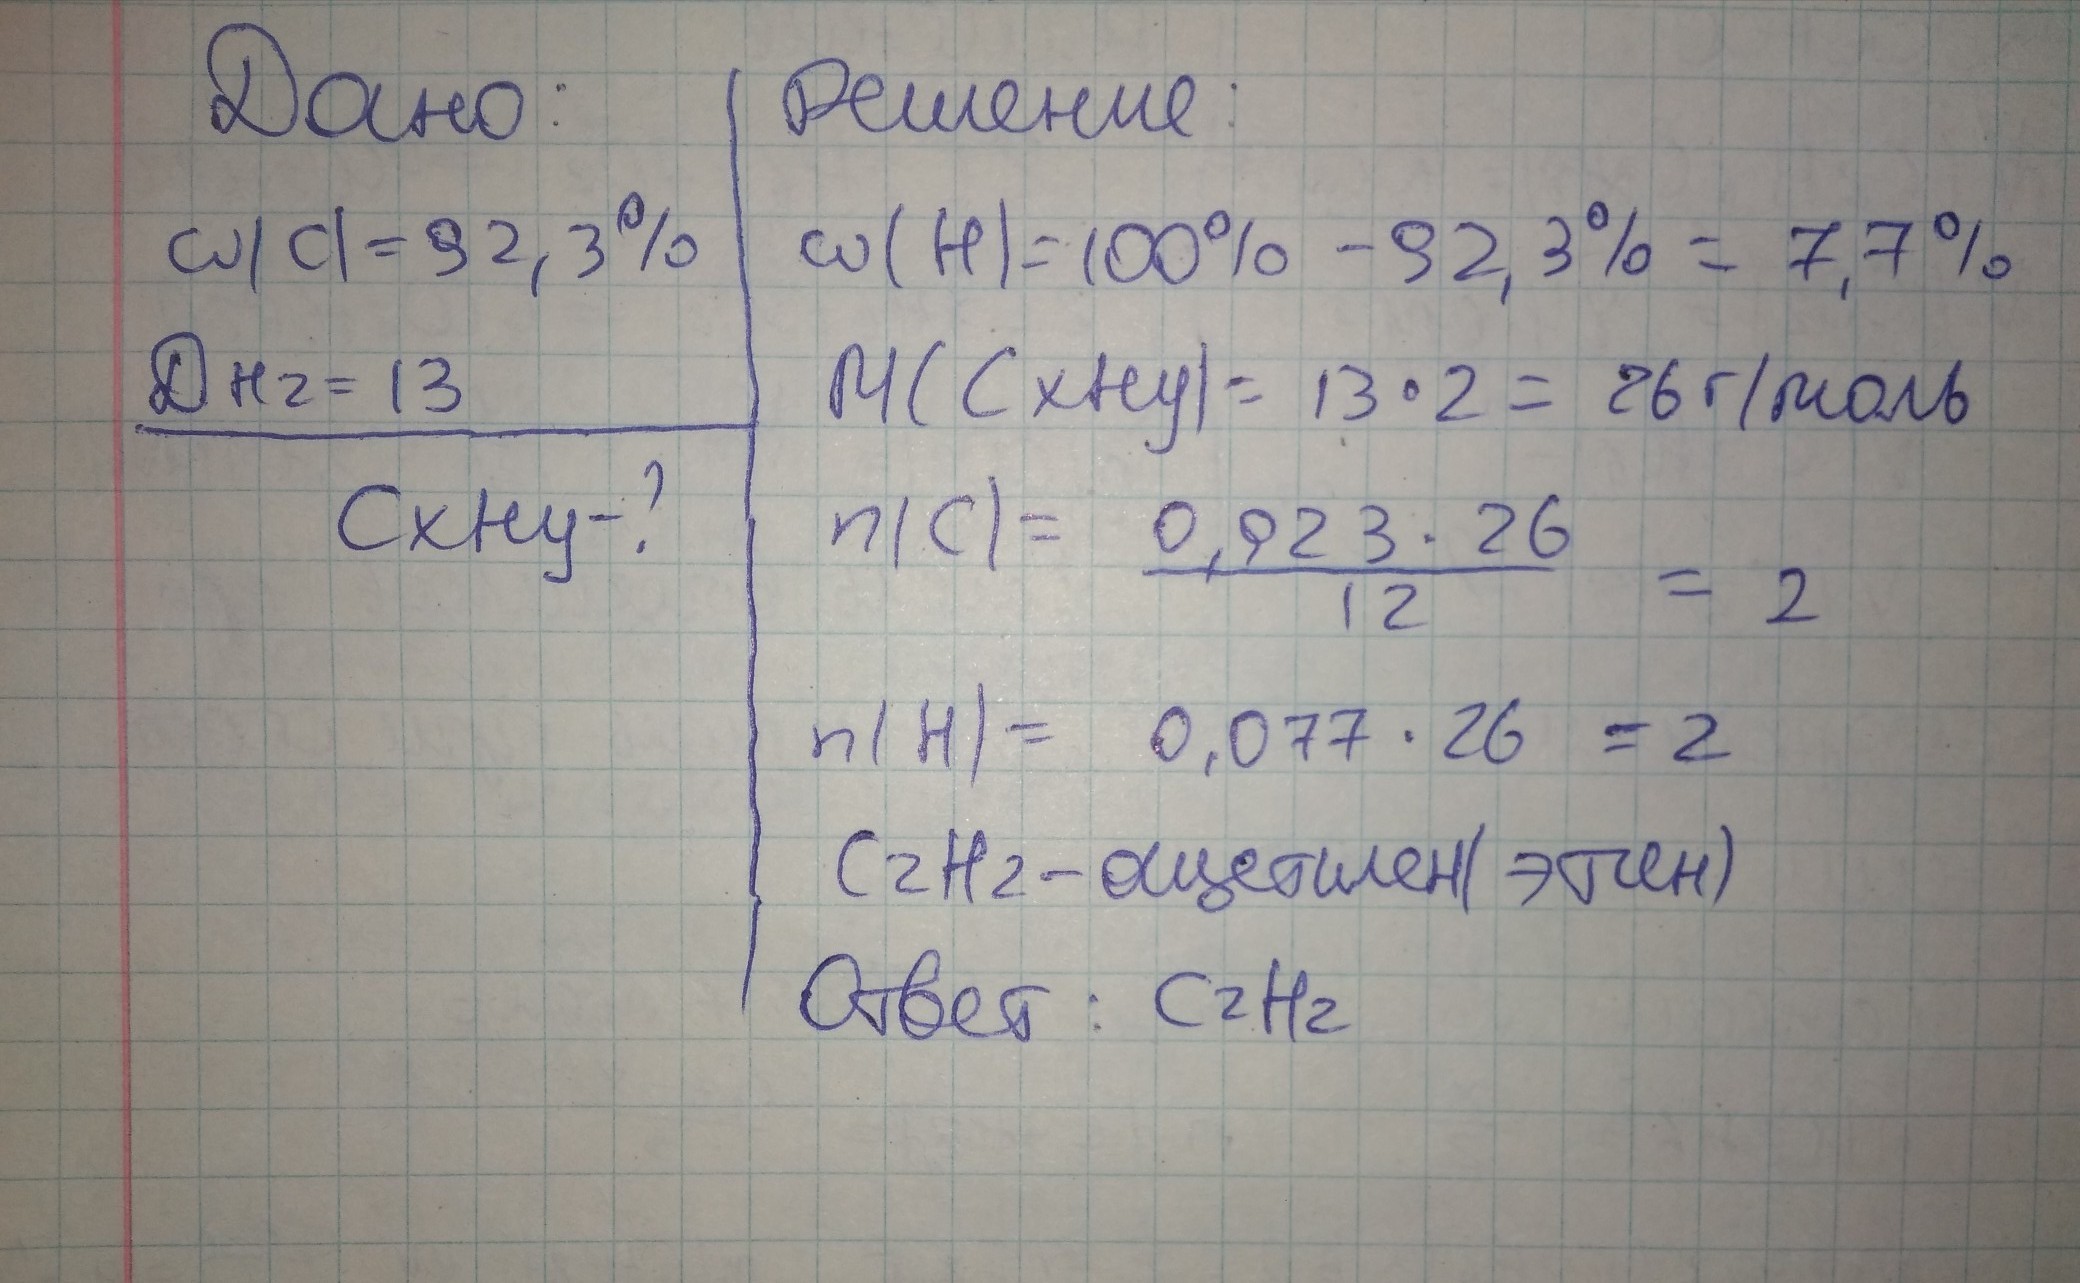 Дано:
ω(C)=92,3%
DH2=13
CxHy-?
Решение:
ω(H)=100% -92,3% = 7,7%
M(CxHy)= 13•2= 26г/моль
n(C)= 0,923·26
12
= 2
n(H)= 0,077·26 =2
C2H2-ацетилен(этиен)
Ответ: C2H2